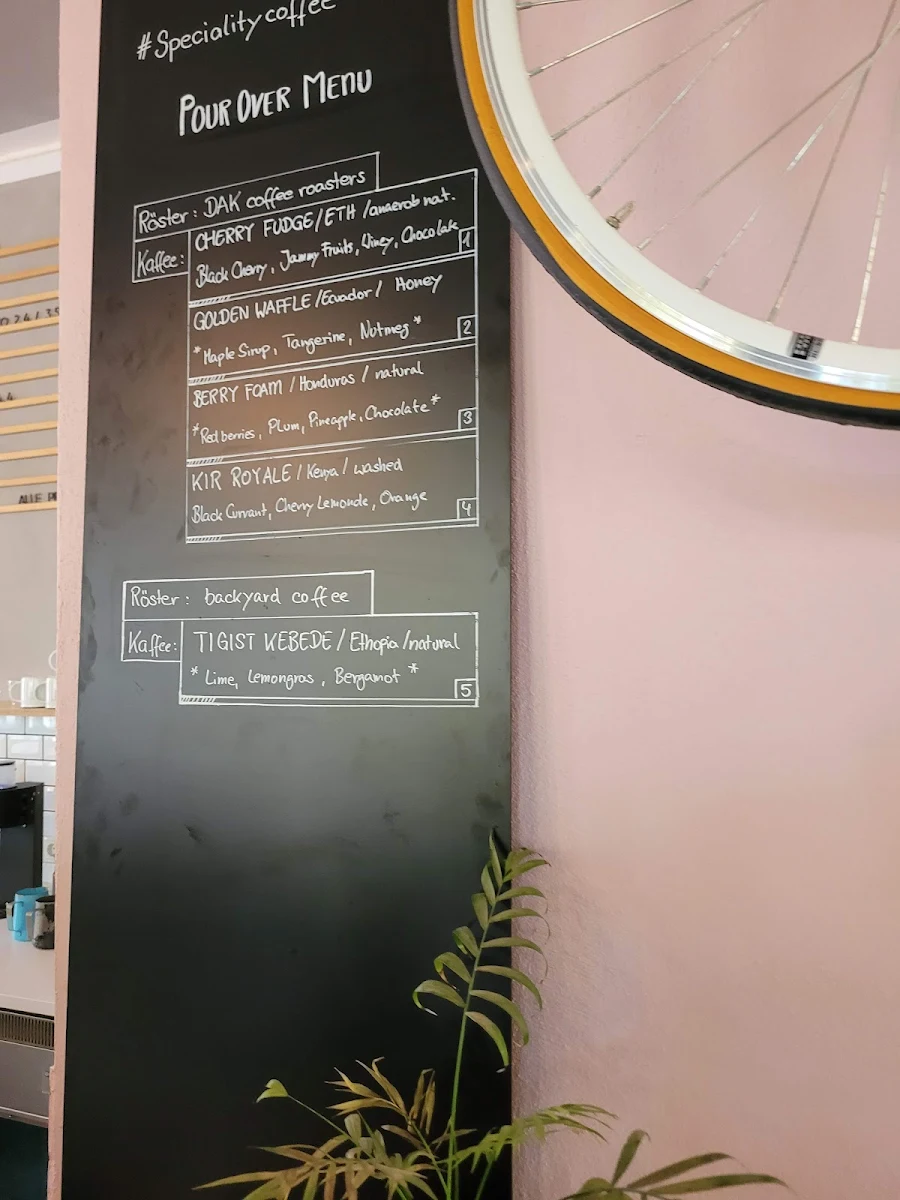 #Speciality coffee
POUR OVER MENU
Röster: DAK coffee roasters
Kaffee:
CHERRY FUDGE/ETH/anaerob nat.
Black Cherry, Jammy Fruits, Winey, Chocolate
1
GOLDEN WAFFLE/Ecuador/ Honey
*Maple Sirup, Tangerine, Nutmeg*
2
BERRY FOAM / Honduras / natural
*Red berries, Plum, Pineapple, Chocolate*
3
KIR ROYALE / Kenya / washed
Black Currant, Cherry Lemonde, Orange
4
Röster: backyard coffee
Kaffee:
TIGIST KEBEDE / Ethopia /natural
* Lime, Lemongras, Bergamot *
5